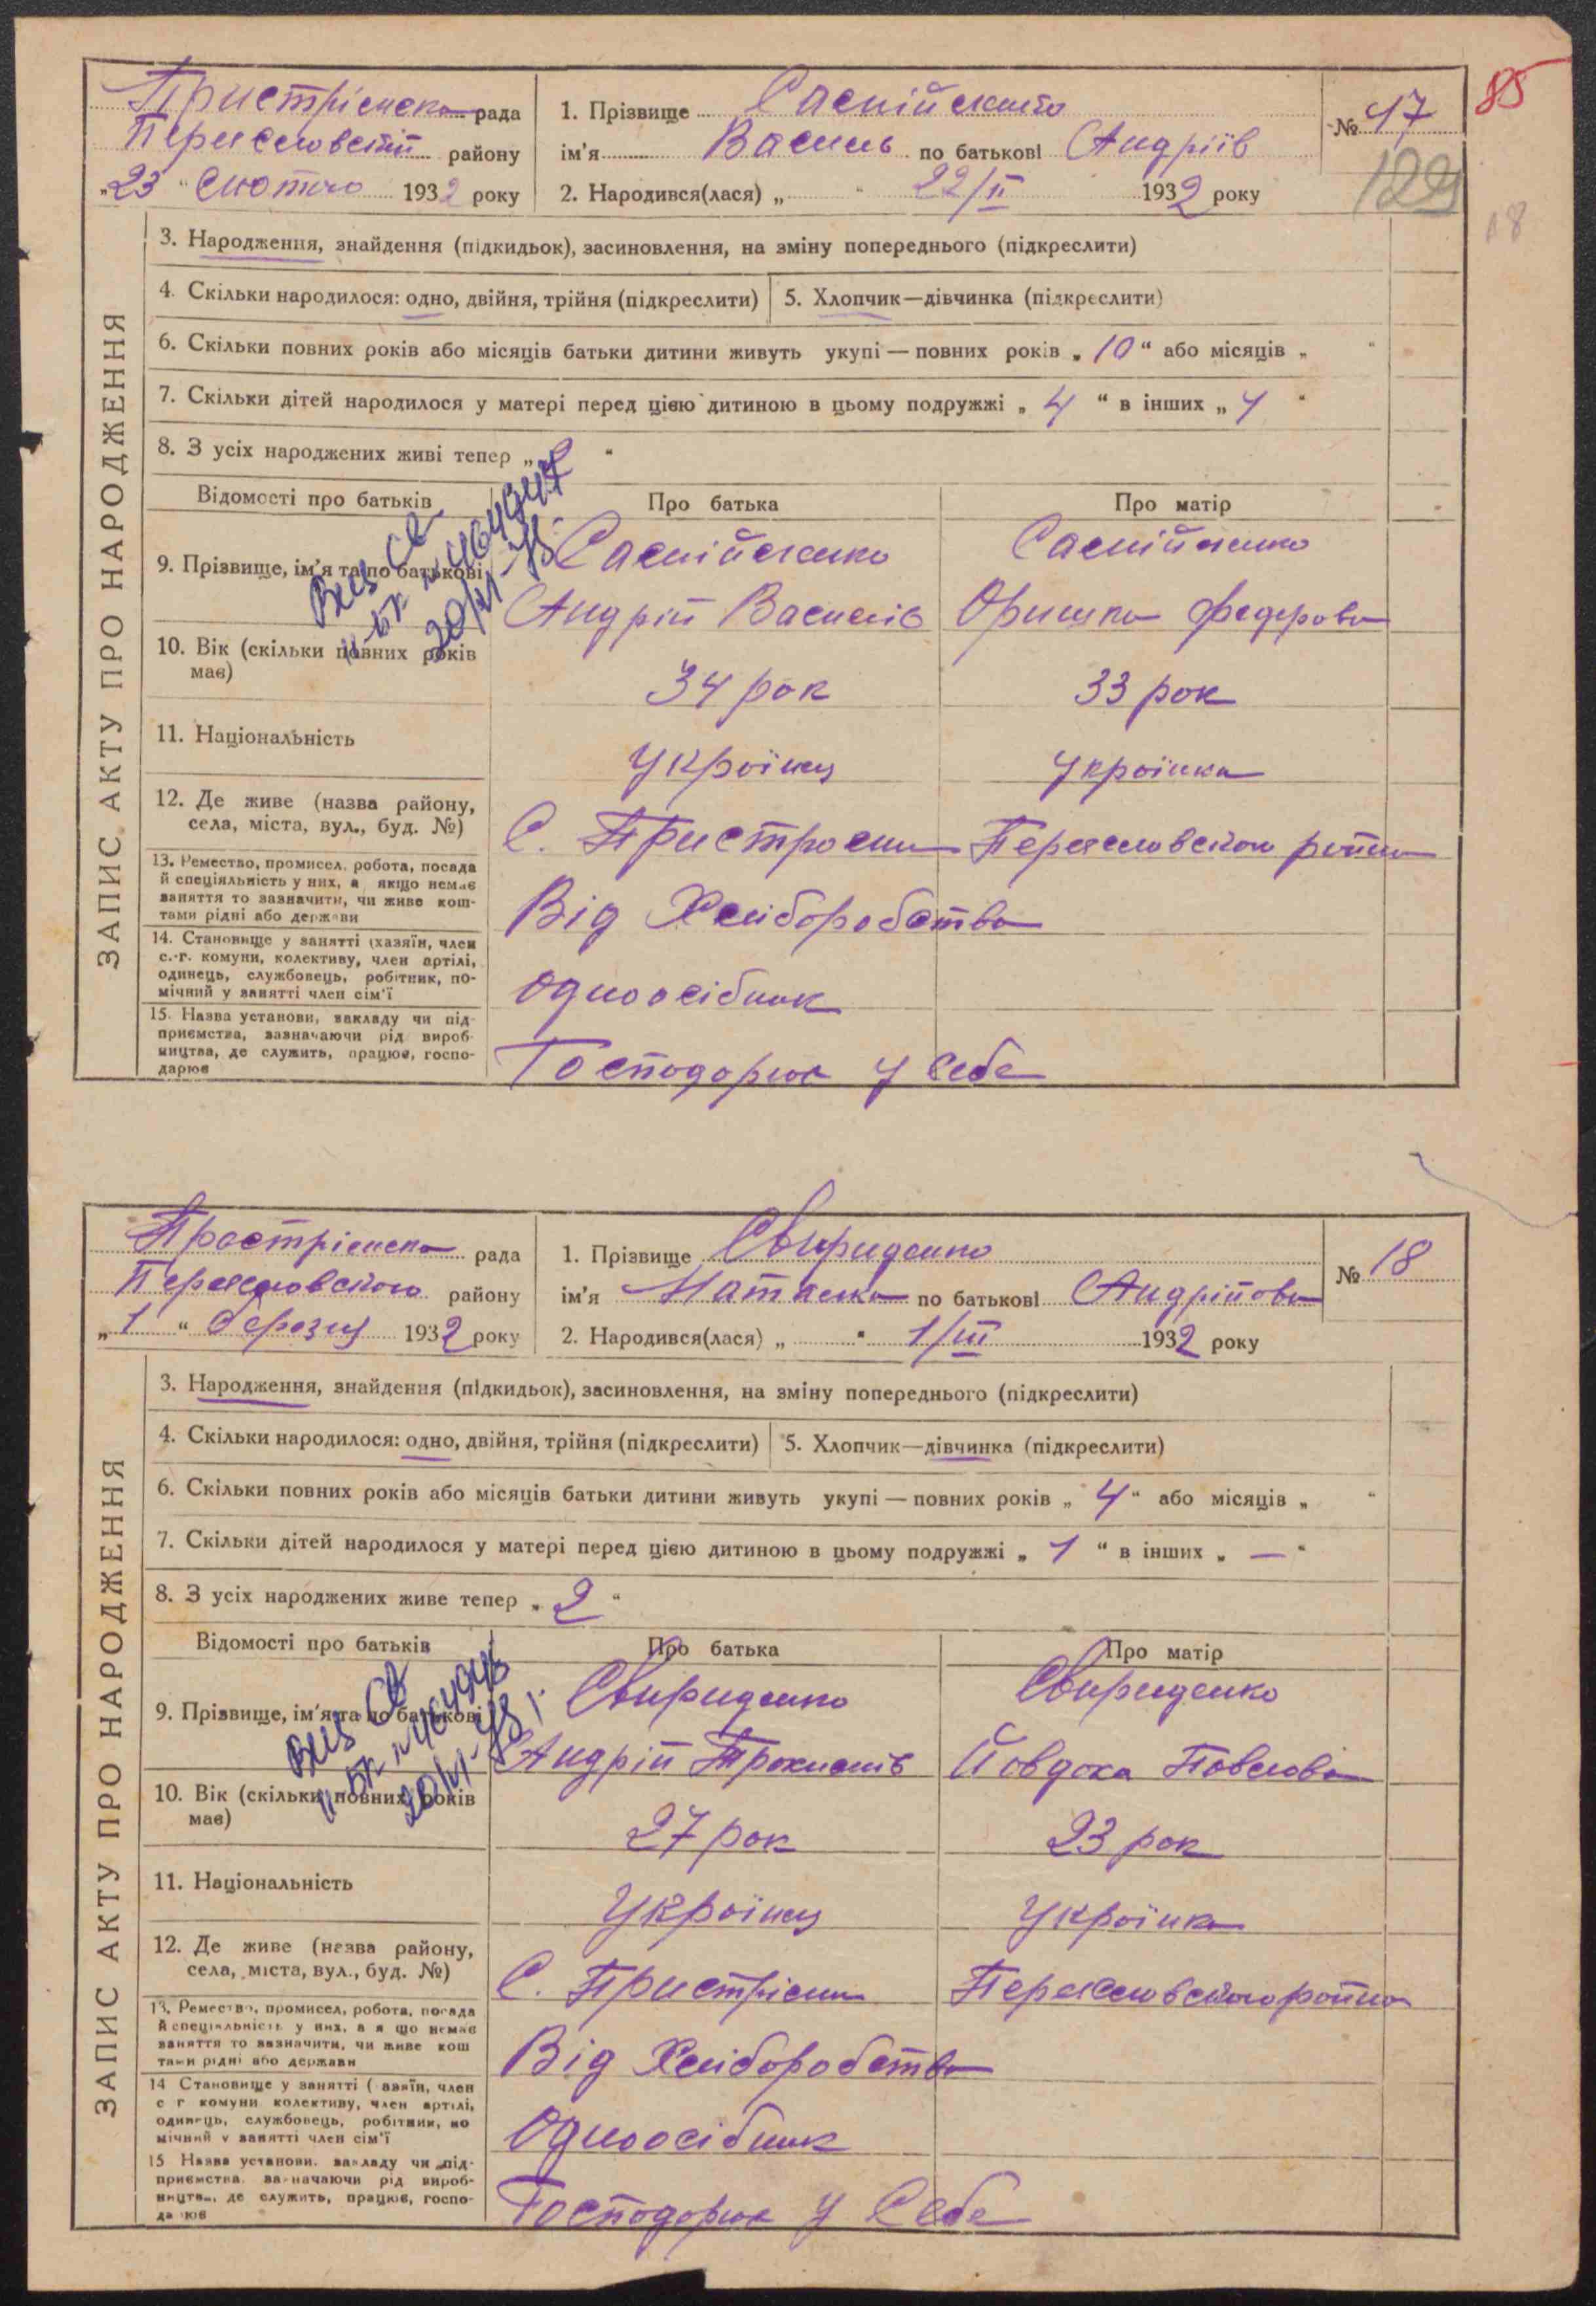 85
Пристрімска рада
Переяславський району
„23“ Лютого 1932 року
1. Прізвище
ім'я Василь по батькові Андріїв
2. Народився(лася) „ “ 22/II 1932 року
№ 17
129
18
ЗАПИС АКТУ ПРО НАРОДЖЕННЯ
3. Народження, знайдення (підкидьок), засиновлення, на зміну попереднього (підкреслити)
4. Скільки народилося: одно, двійня, трійня (підкреслити)
5. Хлопчик—дівчинка (підкреслити)
6. Скільки повних років або місяців батьки дитини живуть укупі — повних років „ 10 “ або місяців „ “
7. Скільки дітей народилося у матері перед цією дитиною в цьому подружжі „ 4 “ в інших „ 1 “
8. З усіх народжених живі тепер „ “
Відомості про батьків
Про батька
Про матір
9. Прізвище, ім'я та по батькові
Андрій Василів
Оришка Федорова
10. Вік (скільки повних років має)
34 рок
33 рок
11. Національність
Українец
Українка
12. Де живе (назва району, села, міста, вул., буд. №)
С. Пристроми Переяславського району
13. Ремество, промисел, робота, посада
й спеціяльність у них, а якщо немає
заняття то зазначити, чи живе кош-
тами рідні або держави
Від Хліборобства
14. Становище у занятті (хазяїн, член
с.-г. комуни, колективу, член артілі,
одинець, службовець, робітник, по-
мічний у занятті член сім'ї
Одноосібник
15. Назва установи, закладу чи під-
приємства, зазначаючи рід вироб-
ництва, де служить, працює, госпо-
дарює
Господорює у себе
рада
Переяславського району
„1“ березня 1932 року
1. Прізвище Свириденко
ім'я Наталка по батькові Андрійова
2. Народився(лася) „ “ 1/III 1932 року
№ 18
ЗАПИС АКТУ ПРО НАРОДЖЕННЯ
3. Народження, знайдення (підкидьок), засиновлення, на зміну попереднього (підкреслити)
4. Скільки народилося: одно, двійня, трійня (підкреслити)
5. Хлопчик—дівчинка (підкреслити)
6. Скільки повних років або місяців батьки дитини живуть укупі — повних років „ 4 “ або місяців „ “
7. Скільки дітей народилося у матері перед цією дитиною в цьому подружжі „ 1 “ в інших „ — “
8. З усіх народжених живе тепер „ 2 “
Відомості про батьків
Про батька
Про матір
9. Прізвище, ім'я та по батькові
Свириденко
Свириденко
Андрій
Йовдоха Повлова
10. Вік (скільки повних років має)
27 рок
23 рок
11. Національність
Українец
Українка
12. Де живе (назва району, села, міста, вул., буд. №)
С. Пристріми
Переяславського району
13. Ремество, промисел, робота, посада
й спеціяльність у них, а якщо немає
заняття то зазначити, чи живе кош
тами рідні або держави
Від Хліборобства
14 Становище у занятті (хазяїн, член
с г комуни колективу, член артілі,
одинець, службовець, робітник, по
мічний у занятті член сім'ї
Одноосібник
15 Назва установи, закладу чи під-
приємства, зазначаючи рід вироб-
ництва, де служить, працює, госпо-
дарює
Господорює у Себе